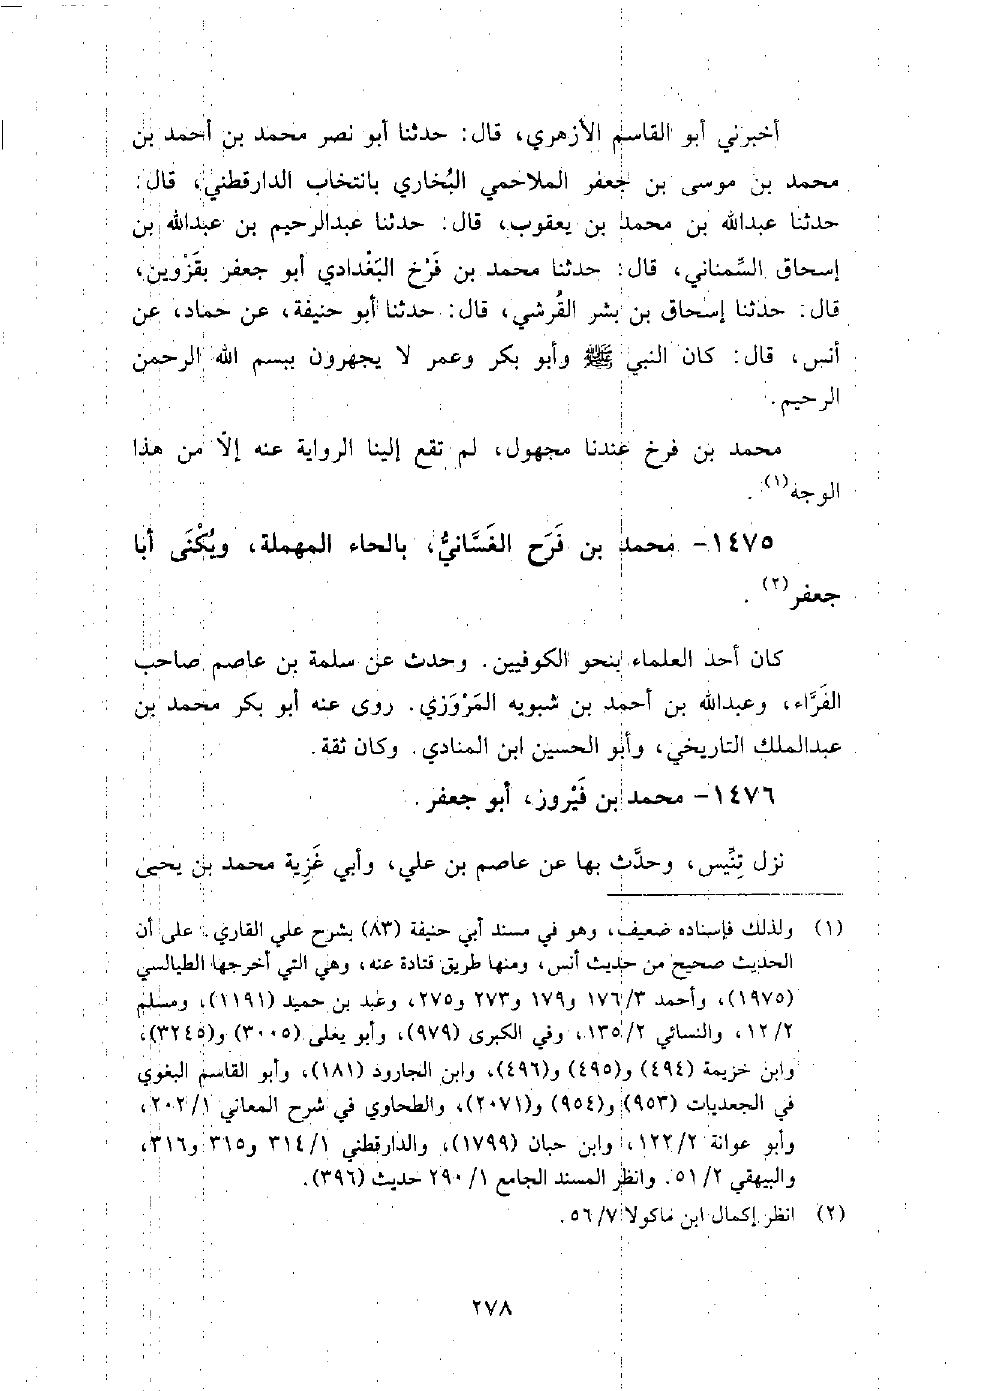 أخبرني أبو القاسم الأزهري، قال: حدثنا أبو نصر محمد بن أحمد بن
محمد بن موسى بن جعفر الملاحمي البُخاري بانتخاب الدارقطني، قال:
حدثنا عبدالله بن محمد بن يعقوب، قال: حدثنا عبدالرحيم بن عبدالله بن
إسحاق السِّمناني، قال: حدثنا محمد بن فَرْخ البَغْدادي أبو جعفر بقَزْوين،
قال: حدثنا إسحاق بن بشر القُرشي، قال: حدثنا أبو حنيفة، عن حماد، عن
أنس، قال: كان النبي ﷺ وأبو بكر وعمر لا يجهرون ببسم الله الرحمن
الرحيم.
محمد بن فرخ عندنا مجهول، لم تقع إلينا الرواية عنه إلّا من هذا
الوجه(١).
١٤٧٥- محمد بن فَرَح الغَسَّانيُّ، بالحاء المهملة، ويُكْنَى أبا
جعفر(٢).
كان أحد العلماء بنحو الكوفيين. وحدث عن سلمة بن عاصم صاحب
الفَرَّاء، وعبدالله بن أحمد بن شبويه المَرْوَزي. روى عنه أبو بكر محمد بن
عبدالملك التاريخي، وأبو الحسين ابن المنادي. وكان ثقة.
١٤٧٦- محمد بن فَيْروز، أبو جعفر.
نزل تِنِّيس، وحدَّث بها عن عاصم بن علي، وأبي غَزِية محمد بن يحيى
(١) ولذلك فإسناده ضعيف، وهو في مسند أبي حنيفة (٨٣) بشرح علي القاري. على أن
الحديث صحيح من حديث أنس، ومنها طريق قتادة عنه، وهي التي أخرجها الطيالسي
(١٩٧٥)، وأحمد ١٧٦/٣ و١٧٩ و٢٧٣ و٢٧٥، وعبد بن حميد (١١٩١)، ومسلم
١٢/٢، والنسائي ١٣٥/٢، وفي الكبرى (٩٧٩)، وأبو يعلى (٣٠٠٥) و(٣٢٤٥)،
وابن خزيمة (٤٩٤) و(٤٩٥) و(٤٩٦)، وابن الجارود (١٨١)، وأبو القاسم البغوي
في الجعديات (٩٥٣) و(٩٥٤) و(٢٠٧١)، والطحاوي في شرح المعاني ٢٠٢/١،
وأبو عوانة ١٢٢/٢، وابن حبان (١٧٩٩)، والدارقطني ٣١٤/١ و٣١٥ و٣١٦،
والبيهقي ٥١/٢. وانظر المسند الجامع ٢٩٠/١ حديث (٣٩٦).
(٢) انظر إكمال ابن ماكولا ٥٦/٧.
٢٧٨